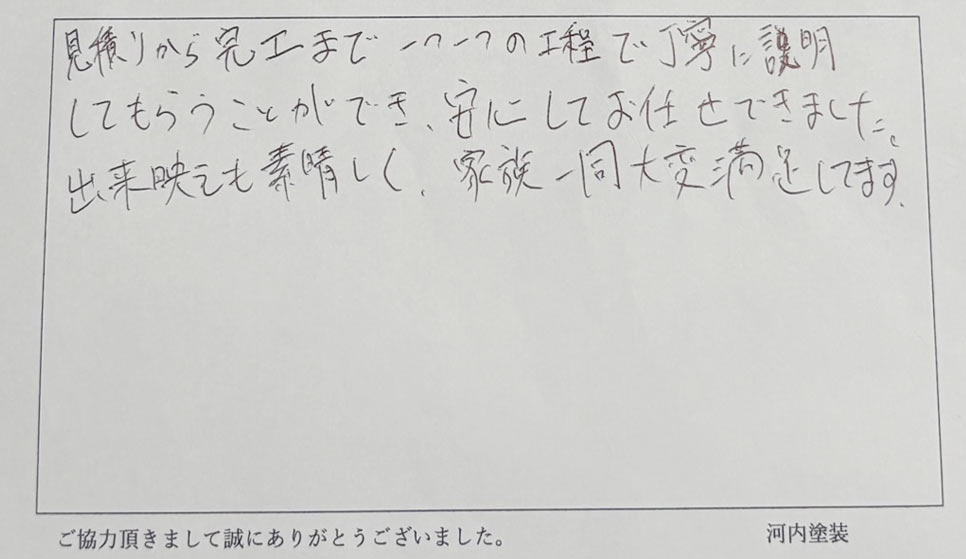 見積りから完工まで一つ一つの工程で丁寧に説明
してもらうことができ、安心してお任せできました。
出来映えも素晴しく、家族一同大変満足してます。
ご協力頂きまして誠にありがとうございました。
河内塗装